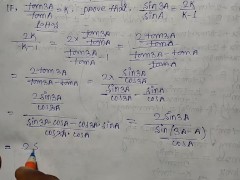 IF, tan3A/tanA = K, prove that, sin3A/sinA = 2K/K-1
2K/K-1 = 2× tan3A/tanA / tan3A/tanA - 1 = 2tan3A/tanA / tan3A-tanA/tanA
= 2tan3A/tan3A-tanA = 2× sin3A/cos3A / sin3A/cos3A - sinA/cosA
= 2sin3A/cos3A / sin3A·cosA-cos3A·sinA/cos3A·cosA = 2sin3A / sin(3A-A)/cosA
= 2S